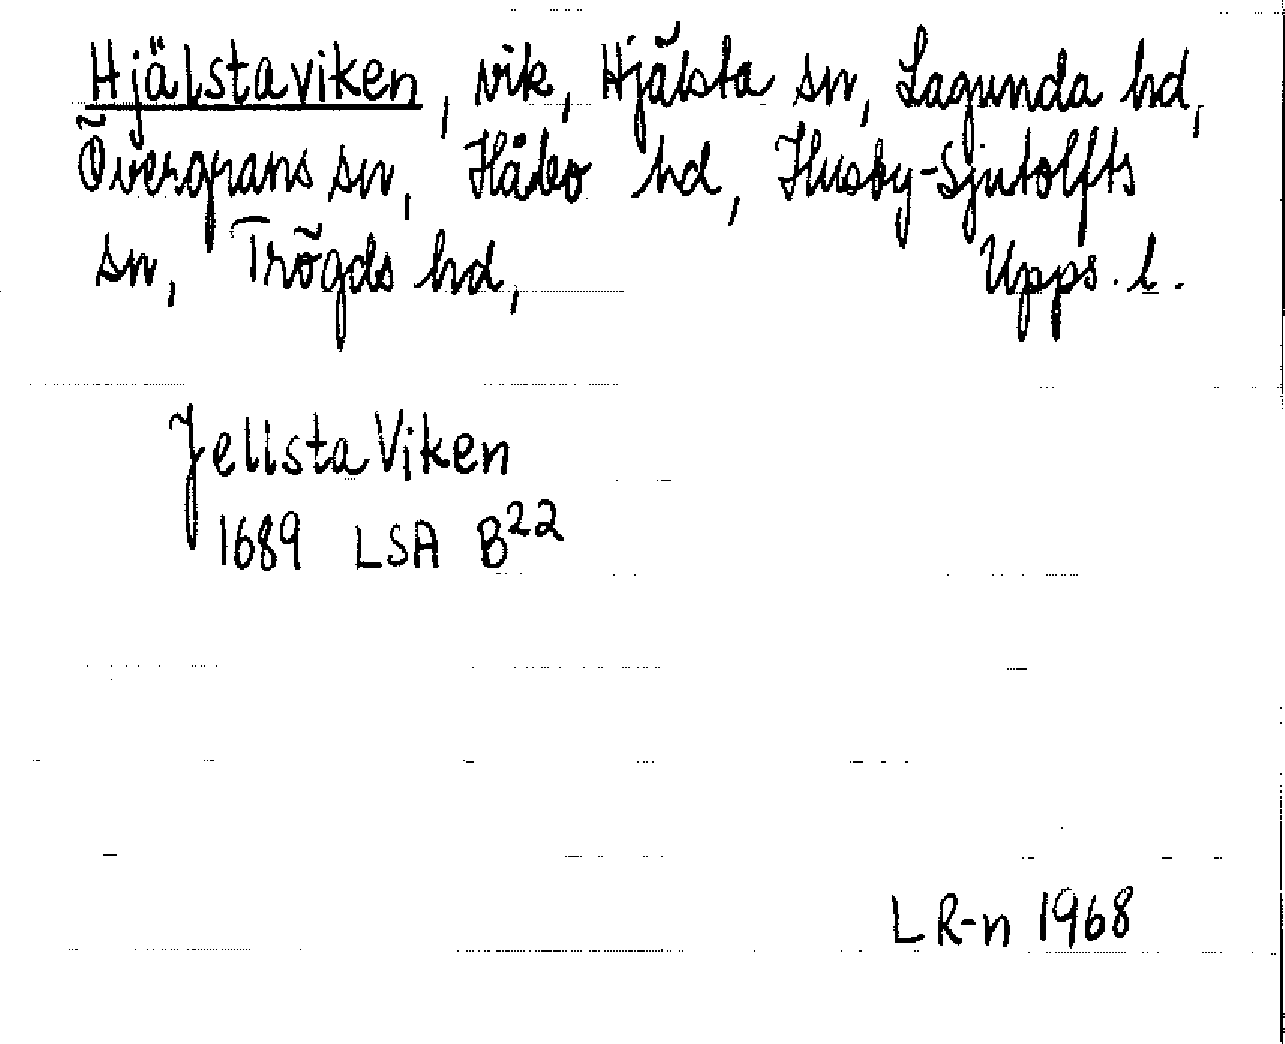 Hjälstaviken, vik, Hjälsta sn, Lagunda hd,
Övergrans sn, Håbo hd, Husby-Sjutolfts
sn, Trögds hd, Upps. l.
Jellsta Viken
1689 LSA B²²
LR-n 1968